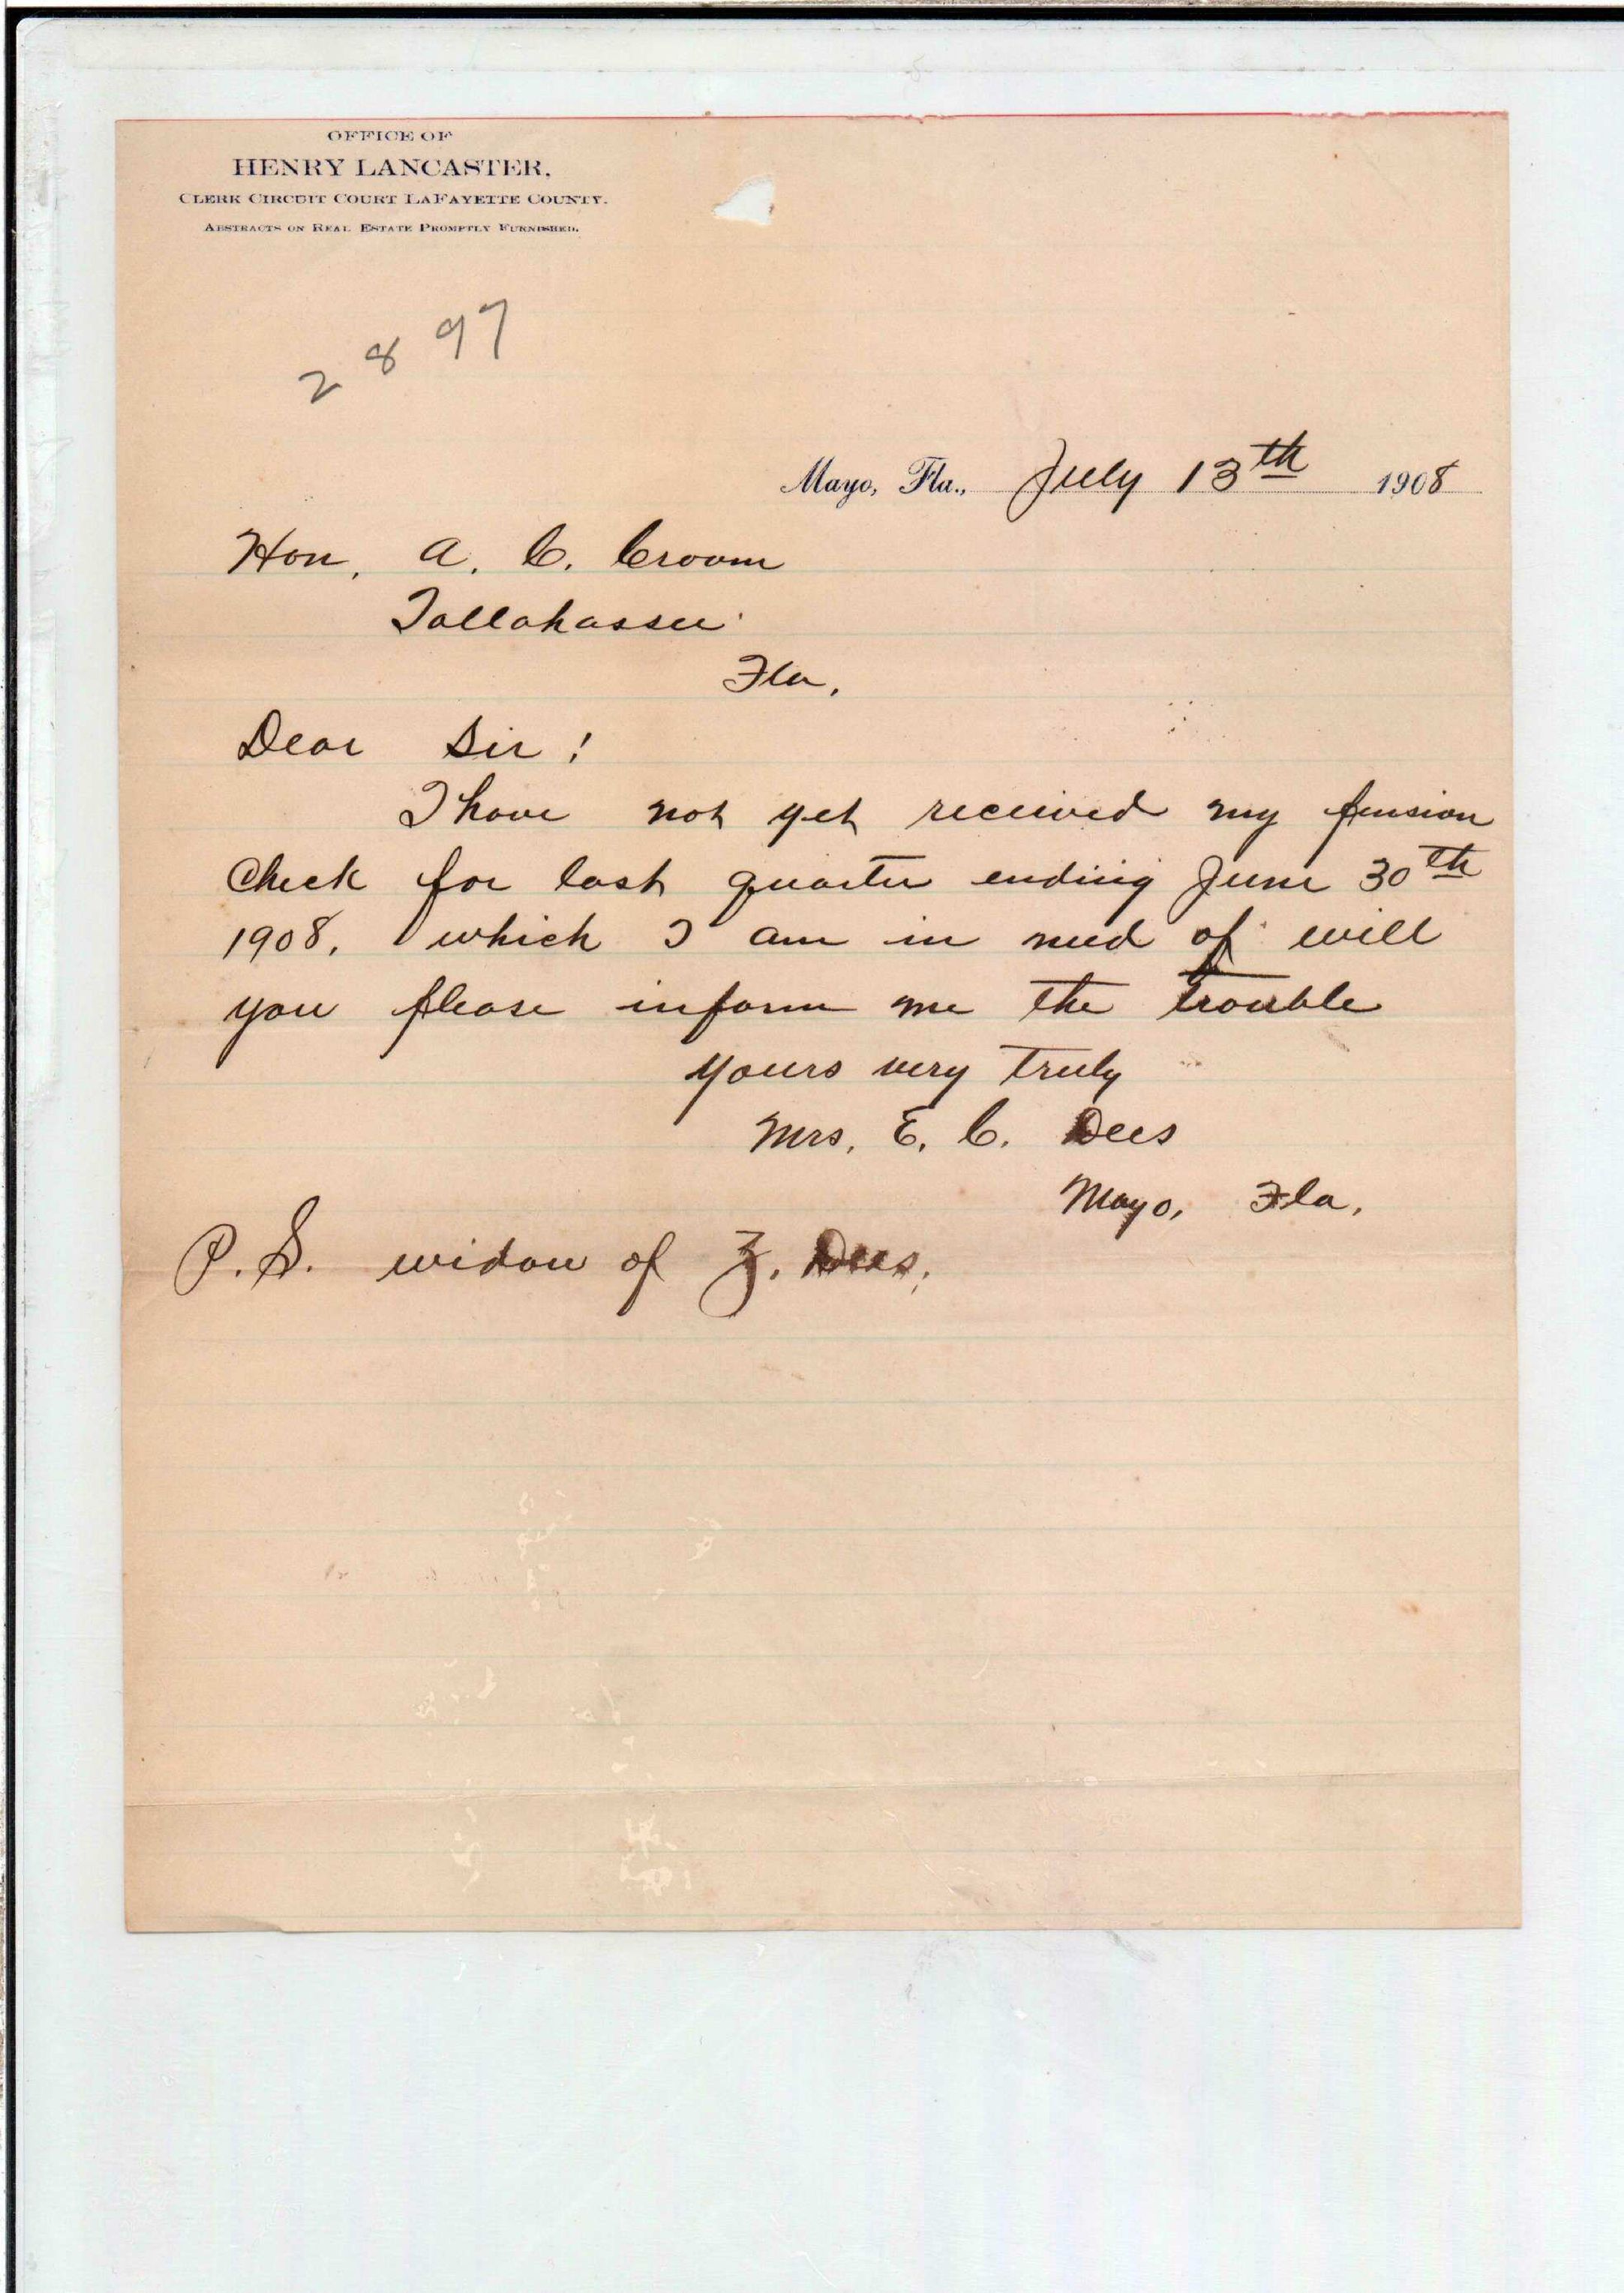 OFFICE OF
HENRY LANCASTER,
CLERK CIRCUIT COURT LAFAYETTE COUNTY.
ABSTRACTS ON REAL ESTATE PROMPTLY FURNISHED.
2897
Mayo, Fla., July 13th 1908
Hon. A. C. Croom
Tallahassee
Fla.
Dear Sir!
I have not yet received my pension
Check for last quarter ending June 30th
1908. which I am in need of will
you please inform me the trouble
yours very truly
Mrs. E. C. Dees
Mayo, Fla.
P.S. widow of Z. Dees.